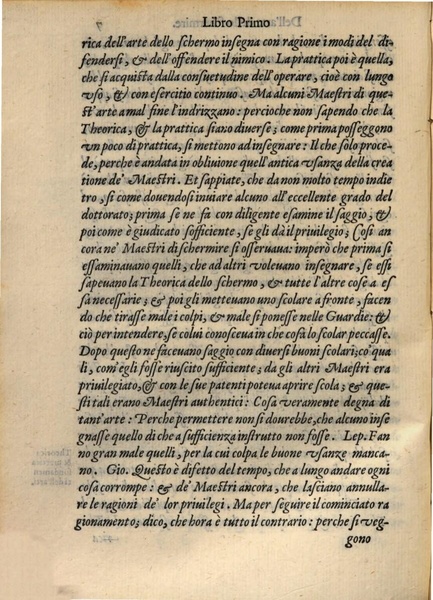 7 Libro Primo
rica dell'arte dello schermo insegna con ragione i modi del di
fendersi, & dell'offendere il nimico. La prattica poi è quella,
che si acquista dalla consuetudine dell'operare, cioè con lungo
vso, & con esercitio continuo. Ma alcuni Maestri di que
st'arte a mal fine l'indrizzano: percioche non sapendo che la
Theorica, & la prattica siano diuerse; come prima posseggono
vn poco di prattica, si mettono ad insegnare: Il che solo proce
de, perche è andata in obliuione quell'antica vsanza della crea
tione de' Maestri. Et sappiate, che da non molto tempo indie
tro, si come douendosi inuiare alcuno all'eccellente grado del
dottorato; prima se ne fa con diligente esamine il saggio, &
poi come è giudicato sofficiente, se gli dà il priuilegio; Così an
cora ne' Maestri di schermire si osseruaua: imperò che prima si
essaminauano quelli, che ad altri voleuano insegnare, se essi
sapeuano la Theorica dello schermo, & tutte l'altre cose a es
sa necessarie; & poi gli metteuano uno scolare a fronte, facen
do che tirasse male i colpi, & male si ponesse nelle Guardie: &
ciò per intendere, se colui conosceua in che cosa lo scolar peccasse.
Dopo questo ne faceuano saggio con diuersi buoni scolari; co' qua
li, com'egli fosse riuscito sufficiente; da gli altri Maestri era
priuilegiato, & con le sue patenti poteua aprire scola; & que
sti tali erano Maestri authentici: Cosa veramente degna di
tant'arte: Perche permettere non si dourebbe, che alcuno inse
gnasse quello di che a sufficienza instrutto non fosse. Lep. Fan
no gran male quelli, per la cui colpa le buone vsanze manca
no. Gio. Questo è difetto del tempo, che a lungo andare ogni
cosa corrompe: & de' Maestri ancora, che lasciano annulla
re le ragioni de' lor priuilegi. Ma per seguire il cominciato ra
gionamento; dico, che hora è tutto il contrario: perche si veg-
gono